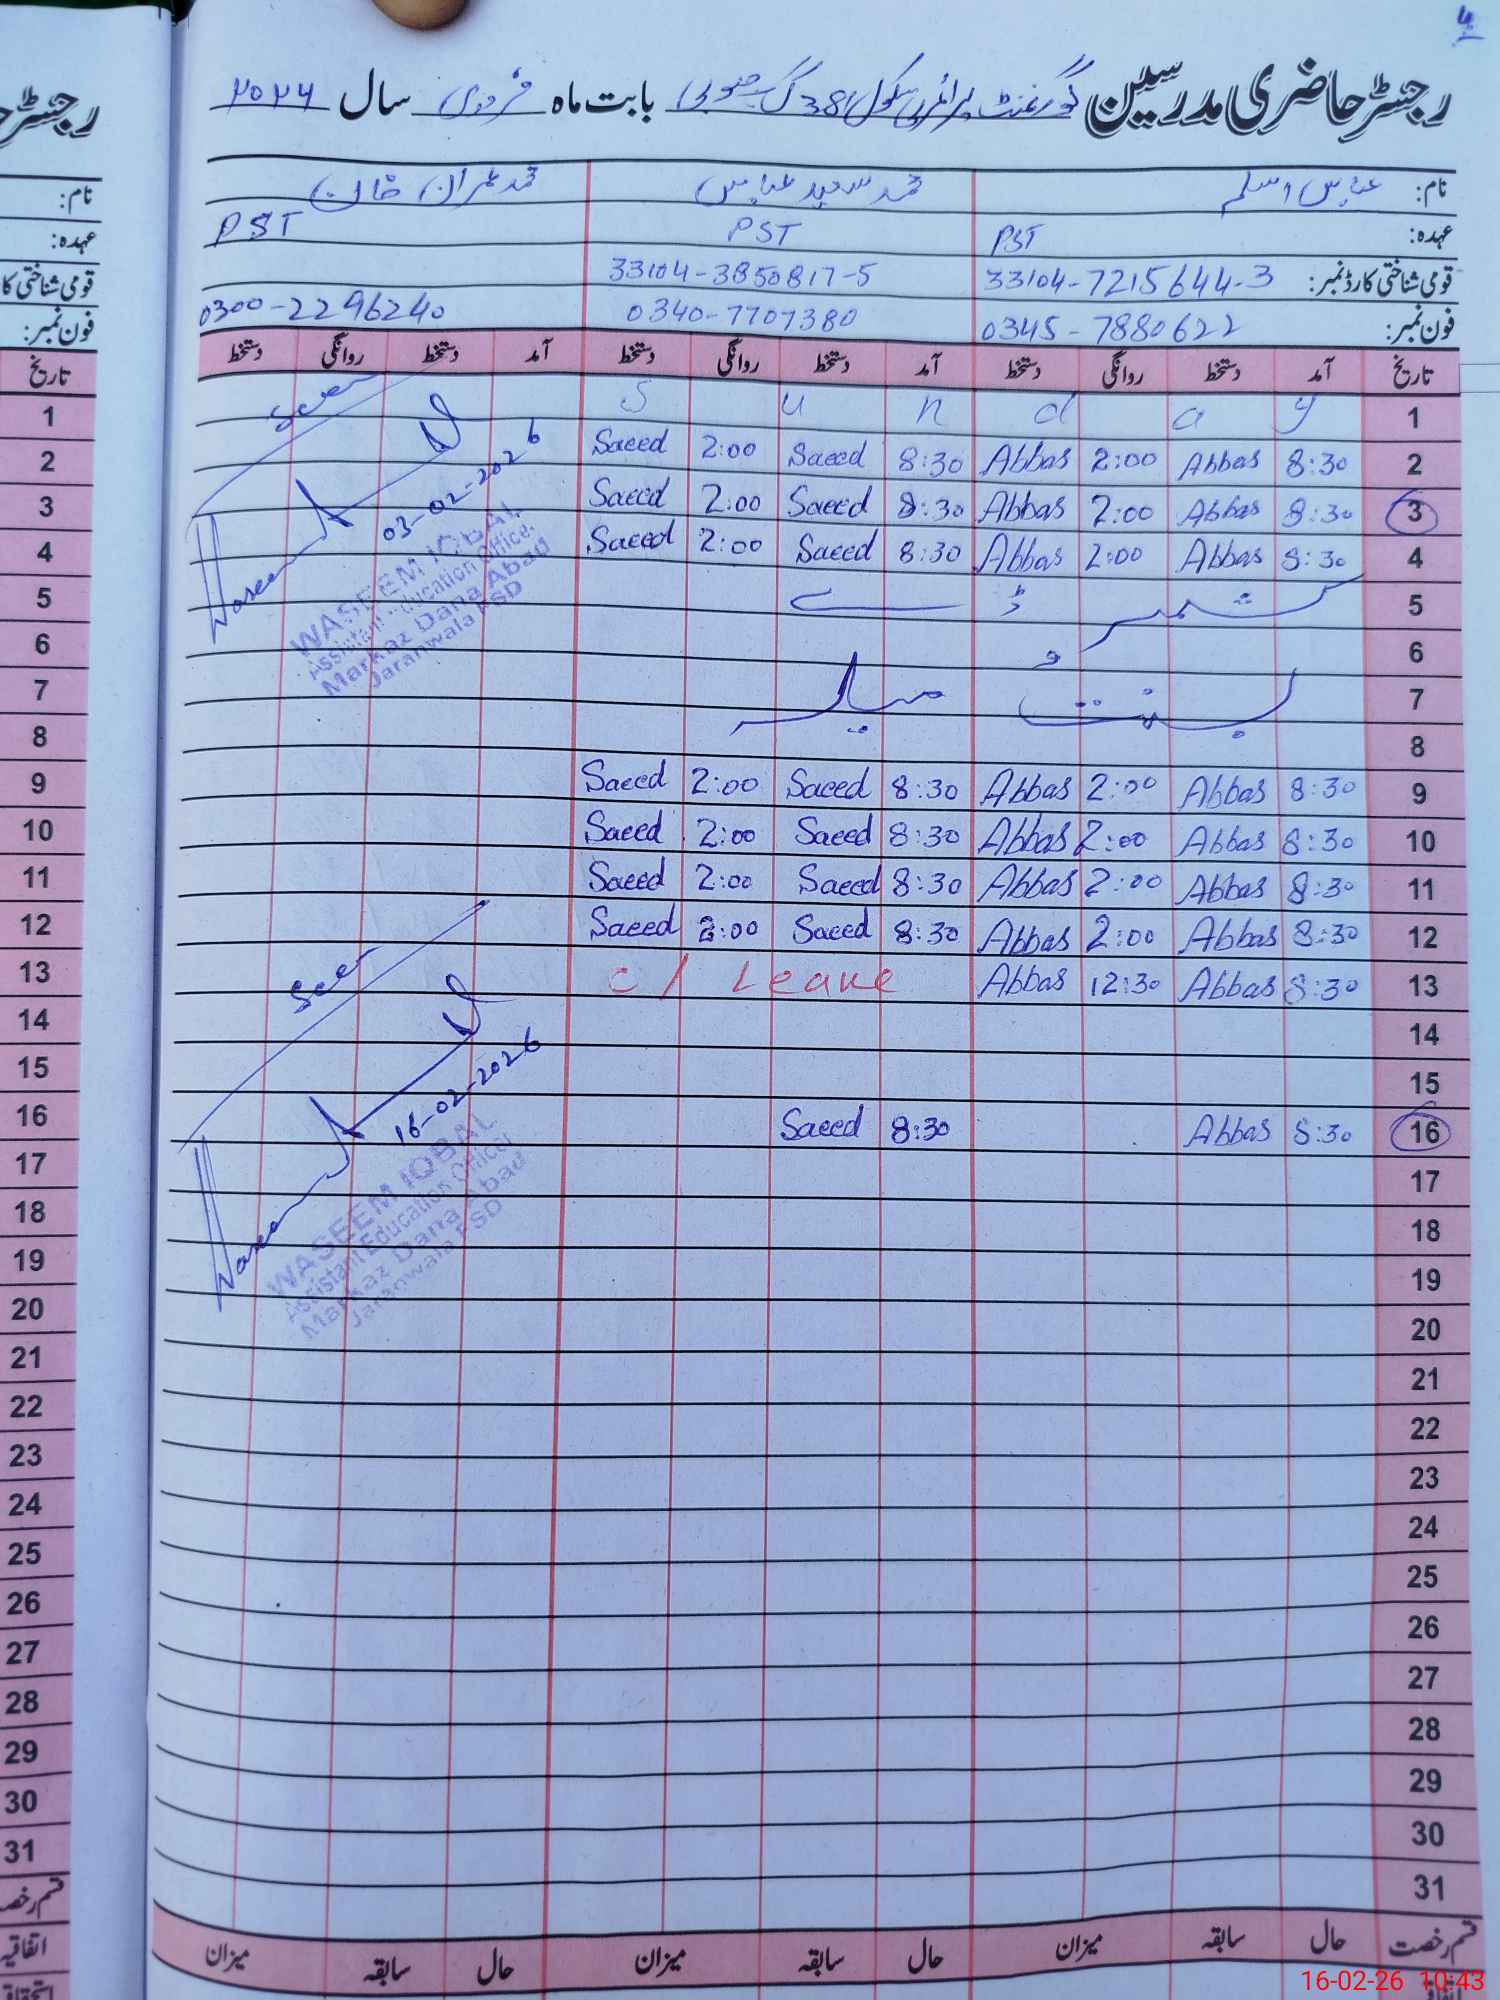 4
رجسٹر حاضری مدرسین گورنمنٹ پرائمری سکول 381 گ ب جنوبی بابت ماہ فروری سال ۲۰۲۶
نام: عباس اسلم محمد سعید عباس محمد عمران خان
عہدہ: PST PST PST
قومی شناختی کارڈ نمبر: 33104-7215644-3 33104-3850817-5
فون نمبر: 0345-7880622 0340-7707380 0300-2296240
تاریخ آمد دستخط روانگی دستخط آمد دستخط روانگی دستخط آمد دستخط روانگی دستخط
1 S u n d a y
2 8:30 Abbas 2:00 Abbas 8:30 Saeed 2:00 Saeed
3 8:30 Abbas 2:00 Abbas 8:30 Saeed 2:00 Saeed
4 8:30 Abbas 2:00 Abbas 8:30 Saeed 2:00 Saeed
5 کشمیر ڈے
6
7 بسنت میلہ
8
9 8:30 Abbas 2:00 Abbas 8:30 Saeed 2:00 Saeed
10 8:30 Abbas 2:00 Abbas 8:30 Saeed 2:00 Saeed
11 8:30 Abbas 2:00 Abbas 8:30 Saeed 2:00 Saeed
12 8:30 Abbas 2:00 Abbas 8:30 Saeed 2:00 Saeed
13 8:30 Abbas 12:30 Abbas C/ Leave
14
15
16 8:30 Abbas 8:30 Saeed
17
18
19
20
21
22
23
24
25
26
27
28
29
30
31
قسم رخصت حال سابقہ میزان حال سابقہ میزان حال سابقہ میزان
Seen
Waseem
03-02-2026
WASEEM IQBAL
Assistant Education Officer
Markaz Dana Abad
Jaranwala FSD
Seen
Waseem
16-02-2026
WASEEM IQBAL
Assistant Education Officer
Markaz Dana Abad
Jaranwala FSD
نام:
عہدہ:
فون نمبر:
تاریخ
1
2
3
4
5
6
7
8
9
10
11
12
13
14
15
16
17
18
19
20
21
22
23
24
25
26
27
28
29
30
31
اتفاقیہ
16-02-26 10:43